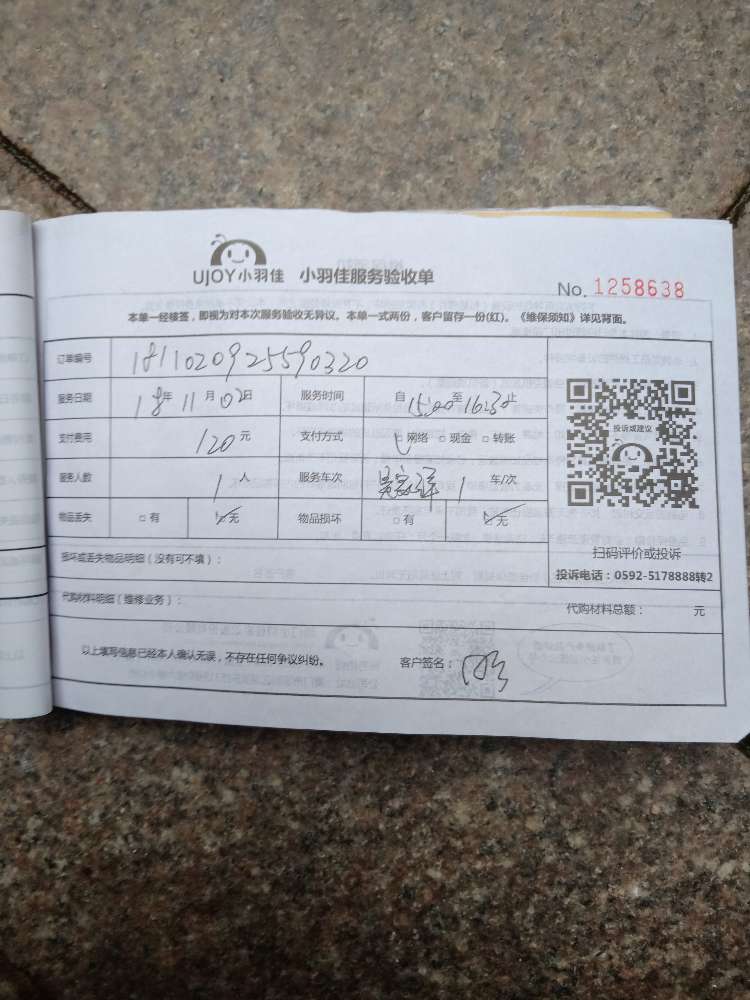 UJOY小羽佳 小羽佳服务验收单
No. 1258638
本单一经接签，即视为对本次服务验收无异议。本单一式两份，客户留存一份(红)。《维保须知》详见背面。
订单编号 1811020925590320
服务日期 18年 11月 02日 服务时间 自 15:00 至 16:30 止
支付费用 120 元 支付方式 □网络 □现金 □转账
投诉或建议
服务人数 1 人 服务车次 1 车/次
物品丢失 □有 □无 物品损坏 □有 □无
扫码评价或投诉
损坏或丢失物品明细（没有可不填）：
投诉电话：0592-5178888转2
代购材料明细（维修业务）： 代购材料总额： 元
以上填写信息已经本人确认无误，不存在任何争议纠纷。 客户签名：